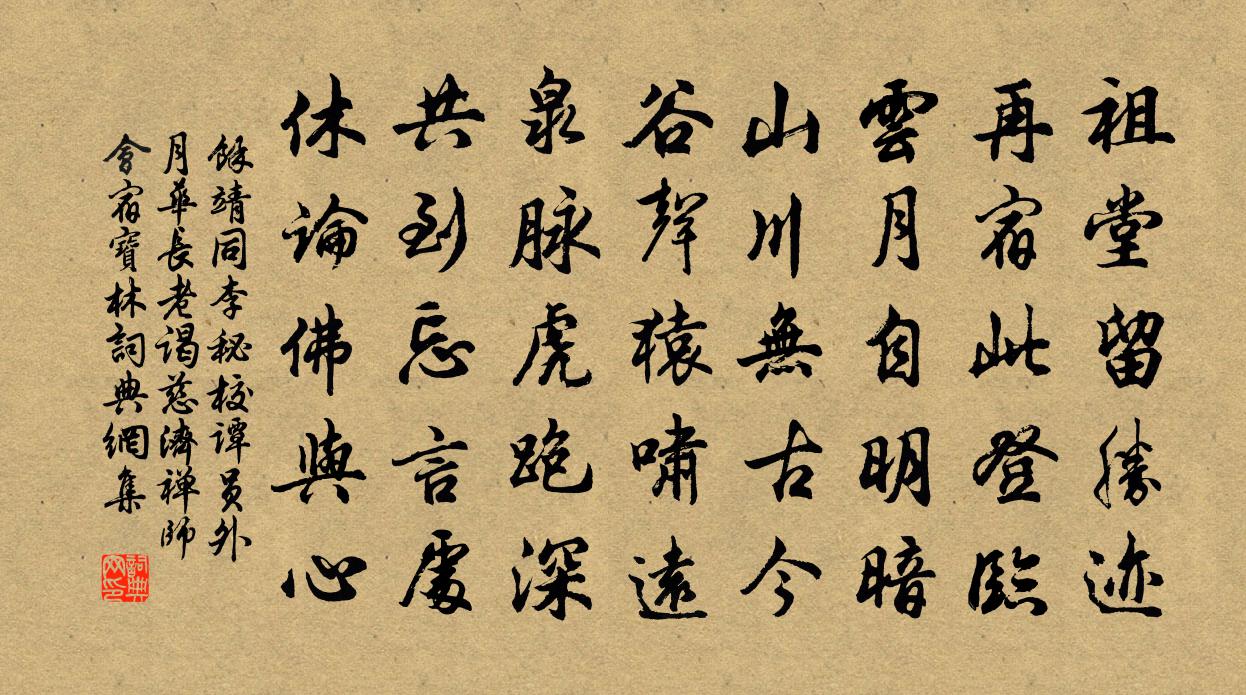 祖堂留勝迹
再宿此登臨
雲月自明暗
山川無古今
谷聲猿嘯遠
泉脉虎跑深
共到忘言處
休論佛與心
餘靖同李秘校譚員外
月華長老謁慈濟禅師
會宿寶林詞典網集
詞典網印